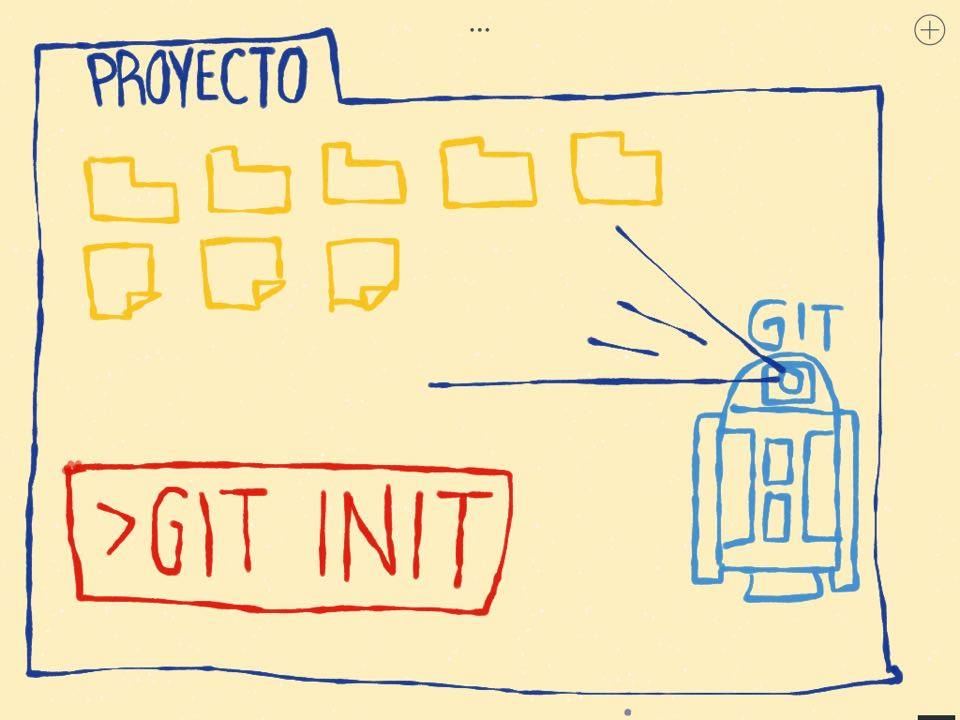 PROYECTO
GIT
>GIT INIT